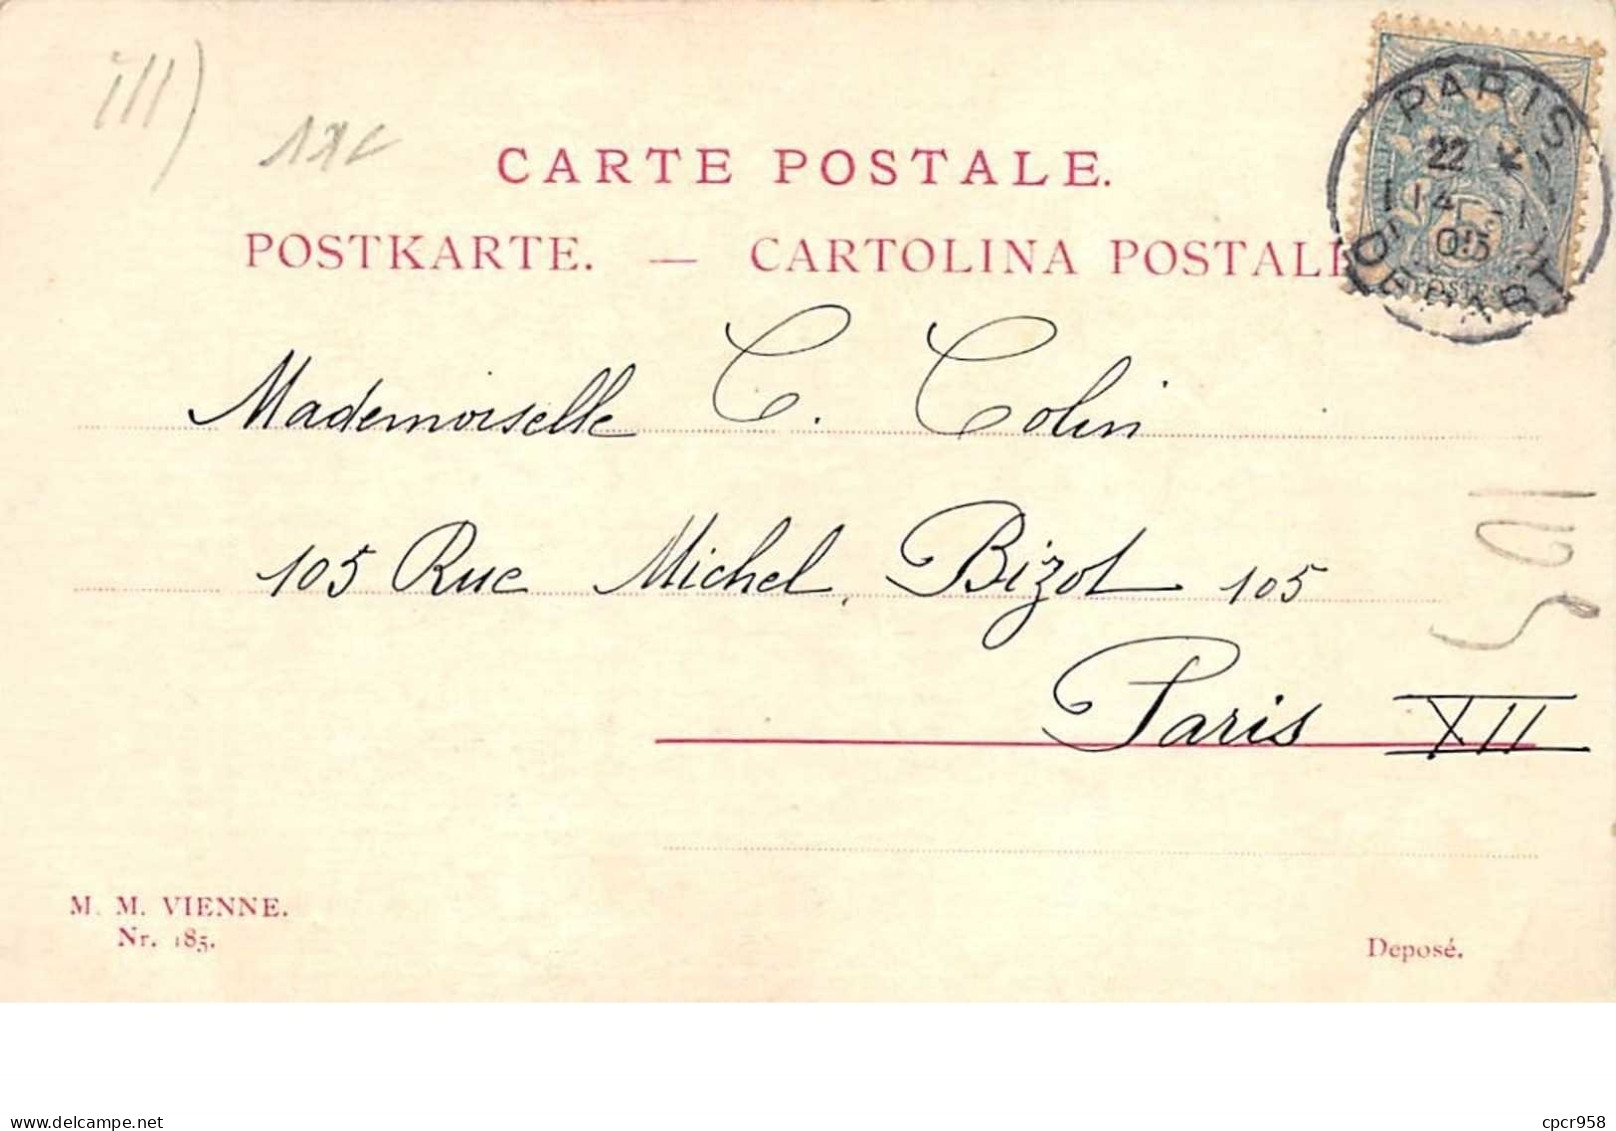 ill)
CARTE POSTALE.
POSTKARTE. — CARTOLINA POSTAL
PARIS
22
14 - 1
05
DEPART
POSTES
Mademoiselle C. Colin
105 Rue Michel Bizot 105
Paris XII
M. M. VIENNE.
Nr. 185.
Deposé.
www.delcampe.net
cpcr958